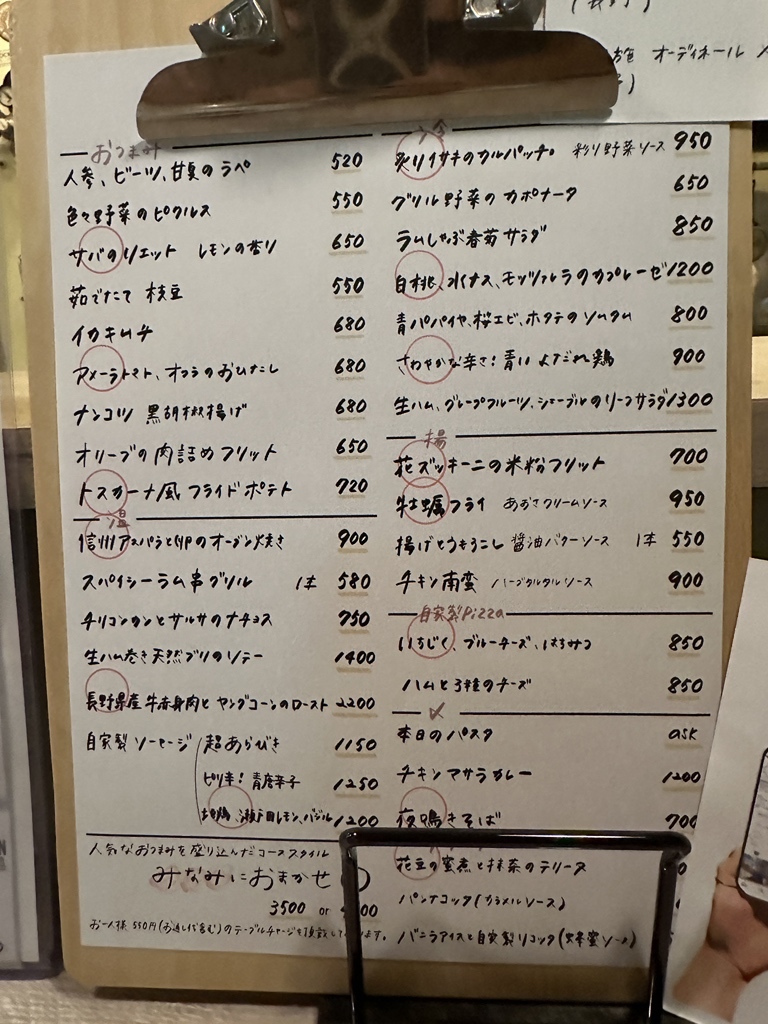 おつまみ
人参、ビーツ、甘夏のラペ 520
色々野菜のピクルス 550
サバのリエット レモンの香り 650
茹でたて 枝豆 550
イカキムチ 680
アメーラトマト、オクラのおひたし 680
ナンコツ 黒胡椒揚げ 680
オリーブの肉詰めフリット 650
トスカーナ風 フライドポテト 720
温
信州アスパラと卵のオーブン焼き 900
スパイシーラム串グリル 1本 580
チリコンカンとサルサのナチョス 750
生ハム巻き 天然ブリのソテー 1400
長野県産 牛赤身肉とヤングコーンのロースト 2200
自家製 ソーセージ 超あらびき 1150
ピリ辛!青唐辛子 1250
地鶏、瀬戸田レモン、バジル 1200
人気なおつまみを盛り込んだコーススタイル
みなみにおまかせ
3500 or
お一人様 550円(お通し代含む)のテーブルチャージを頂戴しております。
冷
炙りイサキのカルパッチョ 彩り野菜ソース 950
グリル野菜のカポナータ 650
ラムしゃぶ春菊サラダ 850
白桃、水ナス、モッツァレラのカプレーゼ 1200
青パパイヤ、桜エビ、ホタテのソムタム 800
さわやかな辛さ!青いよだれ鶏 900
生ハム、グレープフルーツ、シェーブルのリーフサラダ 1300
揚
花ズッキーニの米粉フリット 700
牡蠣フライ あおさクリームソース 950
揚げとうもろこし 醤油バターソース 1本 550
チキン南蛮 ハーブタルタルソース 900
自家製Pizza
いちじく、ブルーチーズ、はちみつ 850
ハムと3種のチーズ 850
〆
本日のパスタ ask
チキンマサラカレー 1200
夜鳴きそば 700
花豆の蜜煮と抹茶のテリーヌ
パンナコッタ(カラメルソース)
バニラアイスと自家製リコッタ(蜂蜜ソース)
オーディネール